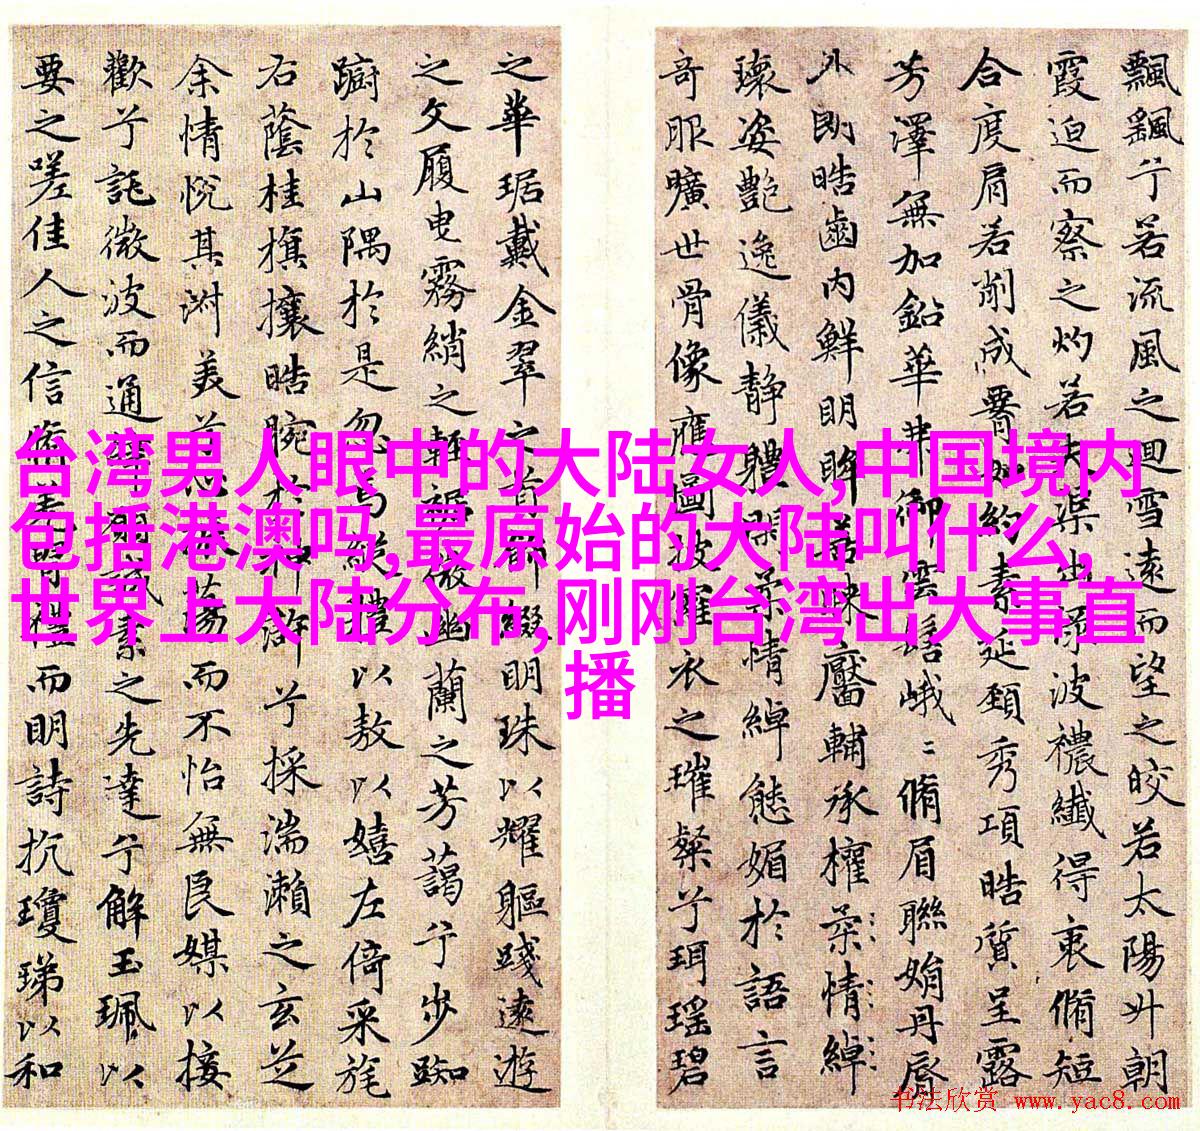 飄飖兮若流風之迴雪遠而望之皎若太陽升朝
霞迫而察之灼若夫渠出淥波穠纖得衷脩短
合度肩若削成腰如約素延頸秀項皓質呈露
芳澤無加鉛華弗御雲髻峨〻脩眉聯娟丹脣
外朗皓齒內鮮明眸善睞靨輔承權柔情綽
瓌姿艷逸儀靜體閑柔情綽態媚於語言
奇服曠世骨像應圖披羅衣之璀粲兮珥瑤碧
之華琚戴金翠之首飾綴明珠以耀軀踐遠遊
之文履曳霧綃之輕裾微幽蘭之芳藹兮步踟
躕於山隅於是忽焉縱體以敖以嬉左倚采旄
右蔭桂旗攘皓腕於神滸兮採湍瀨之玄芝
余情悅其淑美兮心振蕩而不怡無良媒以接
歡兮託微波而通辭願誠素之先達兮解玉珮以
要之嗟佳人之信脩羌習禮而明詩抗瓊珶以和
台湾男人眼中的大陆女人,中国境内
包括港澳吗,最原始的大陆叫什么,
世界上大陆分布,刚刚台湾出大事直
播
书法欣赏 www.yac8.com